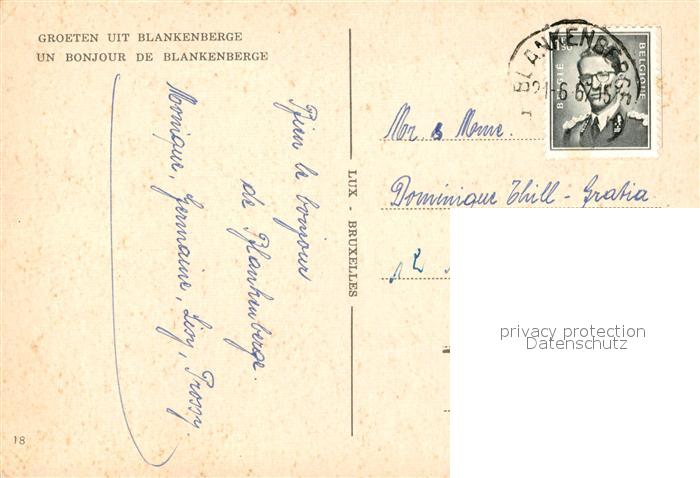 GROETEN UIT BLANKENBERGE
UN BONJOUR DE BLANKENBERGE
Bien le bonjour
de Blankenberge.
Monique, Germaine, Lisy, Prossy.
18
LUX - BRUXELLES
BLANKENBERGE
21-6-67-15
BELGIË BELGIQUE
Mr & Mme.
Dominique Thill - Gratia
12
privacy protection
Datenschutz